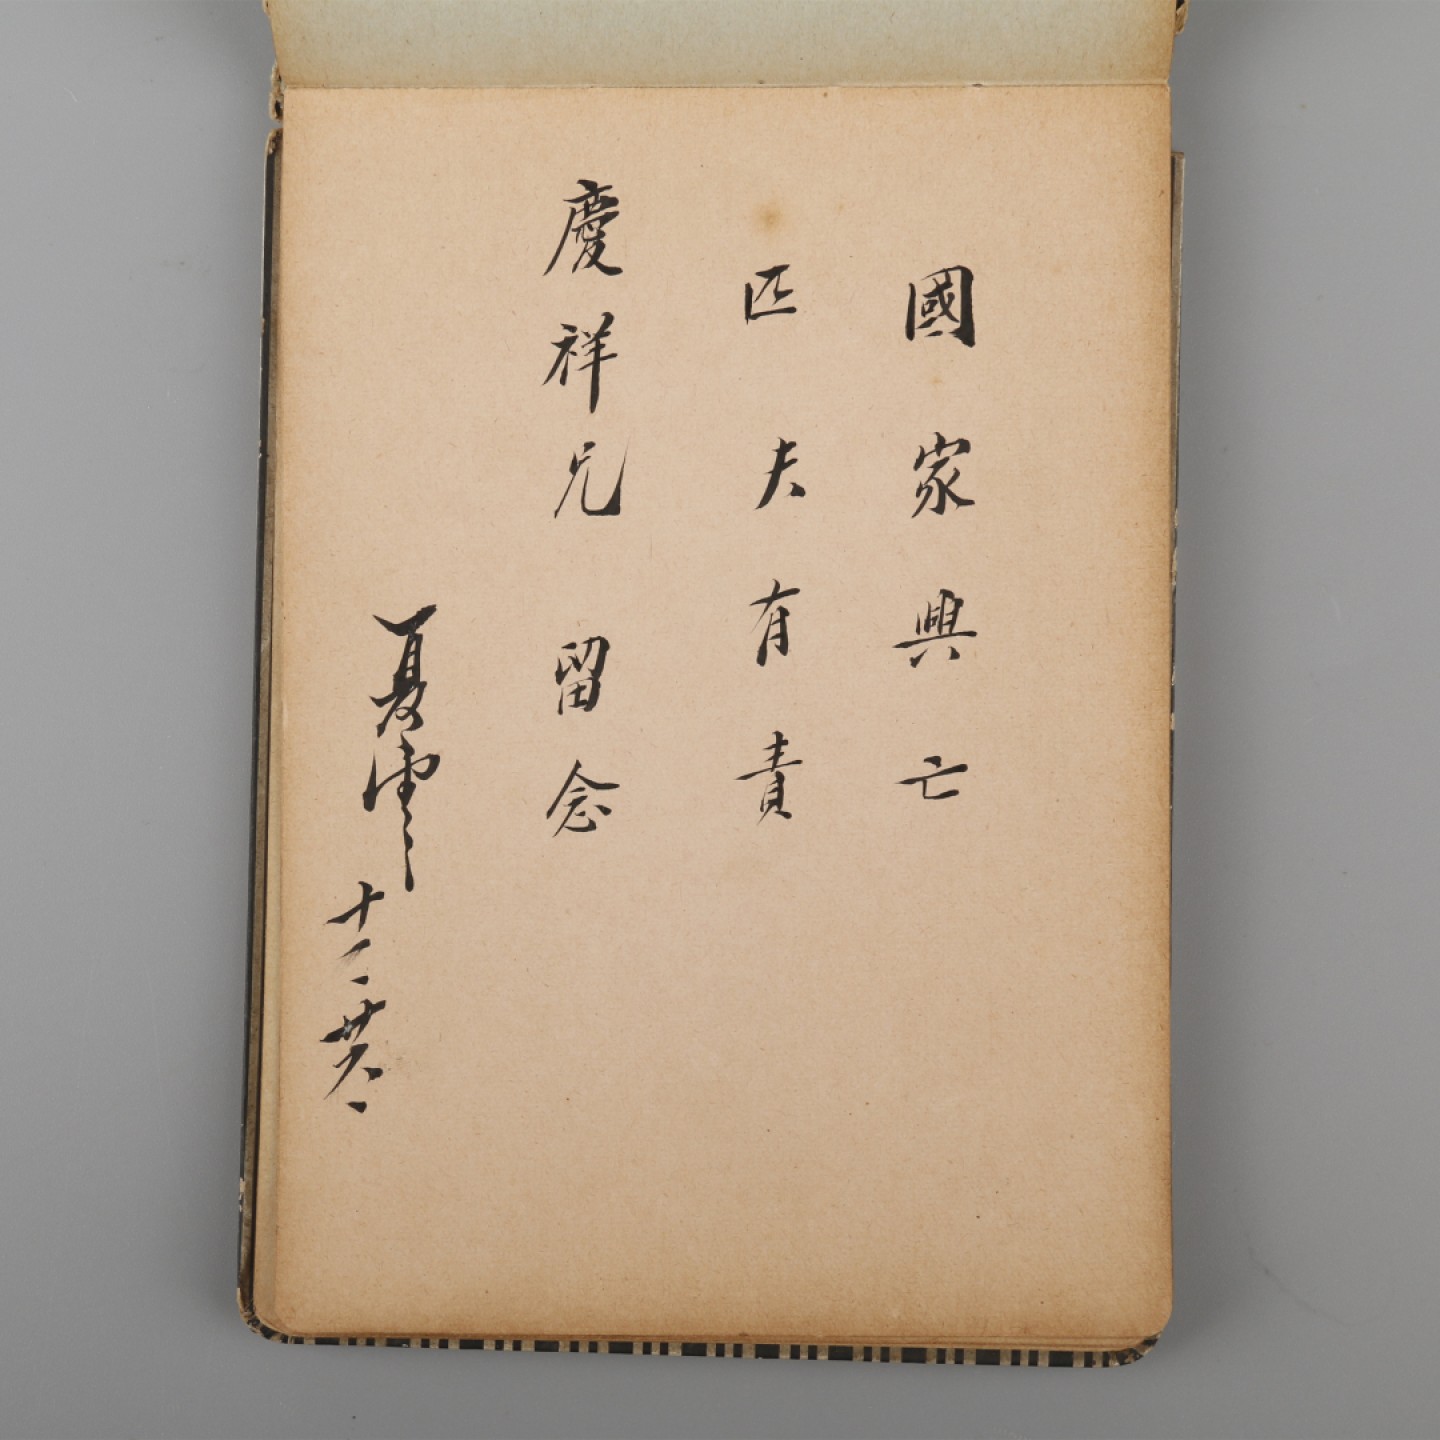 國家興亡
匹夫有責
慶祥兄 留念
夏雲
十一、廿六、